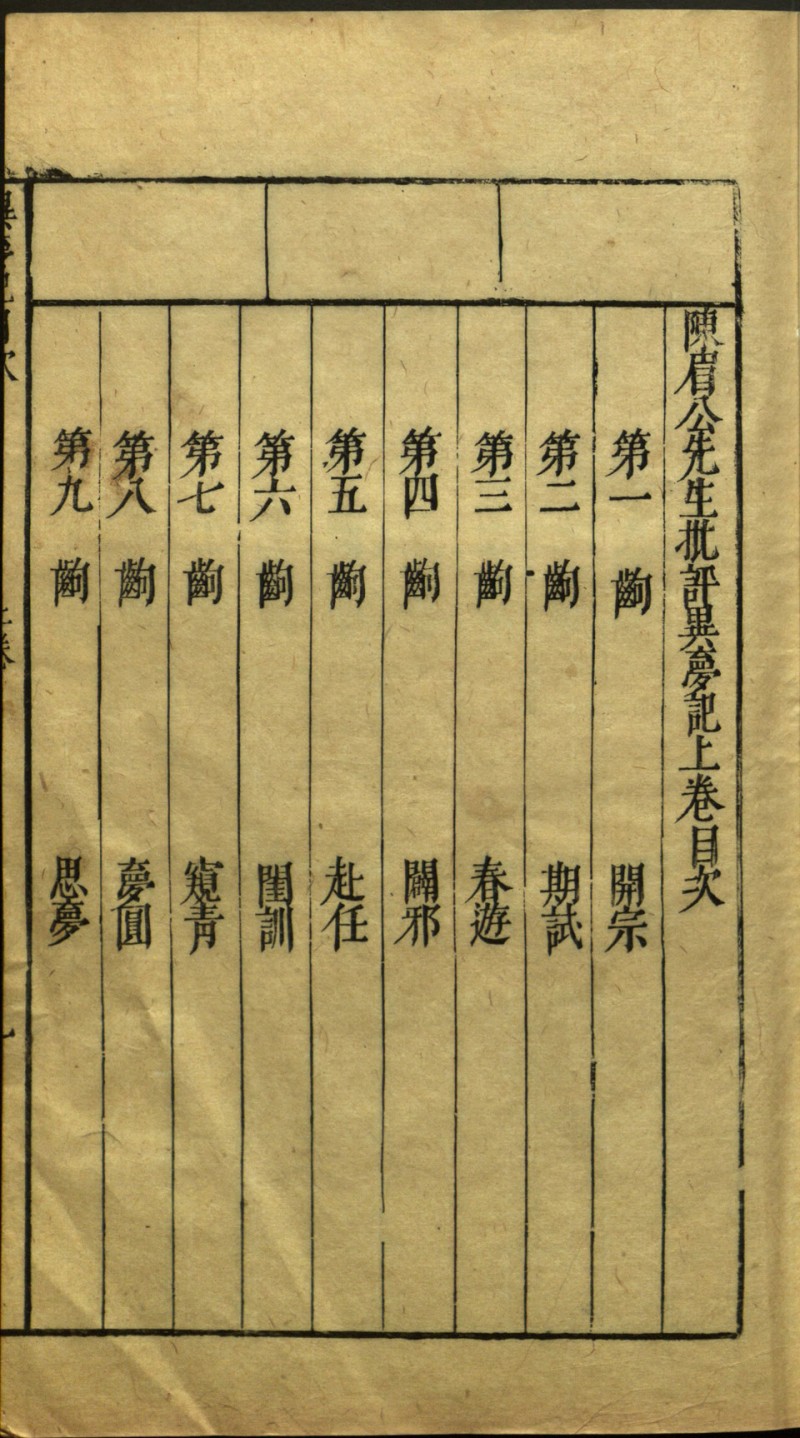 陳眉公先生批評異夢記上卷目次
第一齣 開宗
第二齣 期試
第三齣 春遊
第四齣 闢邪
第五齣 赴任
第六齣 閨訓
第七齣 窺青
第八齣 夢圓
第九齣 思夢
異夢記目次 上卷 一